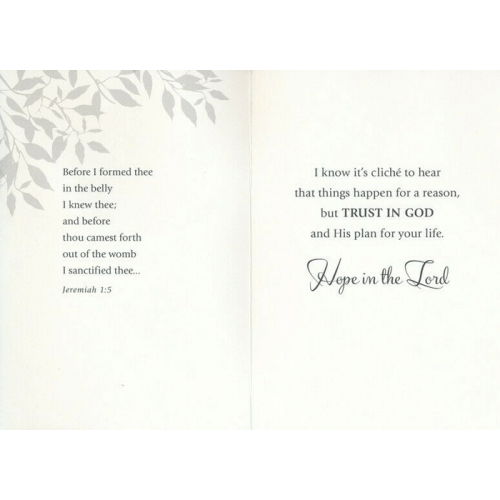 Before I formed thee
in the belly
I knew thee;
and before
thou camest forth
out of the womb
I sanctified thee...
Jeremiah 1:5
I know it's cliché to hear
that things happen for a reason,
but TRUST IN GOD
and His plan for your life.
Hope in the Lord